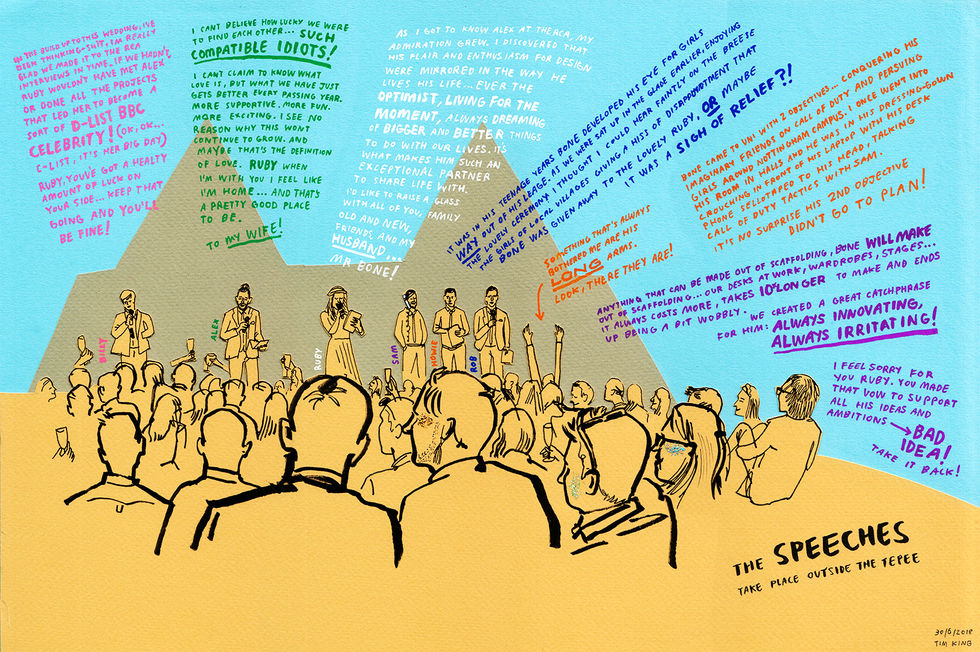 IN THE BUILD UP TO THIS WEDDING, I'VE
BEEN THINKING - SHIT, I'M REALLY
GLAD WE MADE IT TO THE RCA
INTERVIEWS IN TIME. IF WE HADN'T,
RUBY WOULDN'T HAVE MET ALEX
OR DONE ALL THE PROJECTS
THAT LED HER TO BECOME A
SORT OF D-LIST BBC
CELEBRITY! (OK, OK...
C-LIST, IT'S HER BIG DAY)
RUBY, YOU'VE GOT A HEALTY
AMOUNT OF LUCK ON
YOUR SIDE... KEEP THAT
GOING AND YOU'LL
BE FINE!
I CANT BELIEVE HOW LUCKY WE WERE
TO FIND EACH OTHER... SUCH
COMPATIBLE IDIOTS!
I CAN'T CLAIM TO KNOW WHAT
LOVE IS, BUT WHAT WE HAVE JUST
GETS BETTER EVERY PASSING YEAR.
MORE SUPPORTIVE. MORE FUN.
MORE EXCITING. I SEE NO
REASON WHY THIS WONT
CONTINUE TO GROW. AND
MAYBE THAT'S THE DEFINITION
OF LOVE. RUBY WHEN
I'M WITH YOU I FEEL LIKE
I'M HOME... AND THAT'S
A PRETTY GOOD PLACE
TO BE.
TO MY WIFE!
AS I GOT TO KNOW ALEX AT THE RCA, MY
ADMIRATION GREW. I DISCOVERED THAT
HIS FLAIR AND ENTHUSIASM FOR DESIGN
WERE MIRRORED IN THE WAY HE
LIVES HIS LIFE... EVER THE
OPTIMIST, LIVING FOR THE
MOMENT, ALWAYS DREAMING
OF BIGGER AND BETTER THINGS
TO DO WITH OUR LIVES. IT'S
WHAT MAKES HIM SUCH AN
EXCEPTIONAL PARTNER
TO SHARE LIFE WITH.
I'D LIKE TO RAISE A GLASS
WITH ALL OF YOU, FAMILY
OLD AND NEW,
FRIENDS, AND MY
HUSBAND...
MR BONE!
IT WAS IN HIS TEENAGE YEARS BONE DEVELOPED HIS EYE FOR GIRLS
WAY OUT OF HIS LEAGE. AS WE WERE SAT UP IN THE GLADE EARLIER, ENJOYING
THE LOVELY CEREMONY, I THOUGHT I COULD HEAR FAINTLY ON THE BREESE
THE GIRLS OF LOCAL VILLAGES GIVING A HISS OF DISAPPOINTMENT THAT
BONE WAS GIVEN AWAY TO THE LOVELY RUBY, OR MAYBE
IT WAS A SIGH OF RELIEF?!
SOMETHING THAT'S ALWAYS
BOTHERED ME ARE HIS
LONG ARMS.
LOOK, THERE THEY ARE!
BONE CAME TO UNI WITH 2 OBJECTIVES... CONQUERING HIS
IMAGINARY FRIENDS ON CALL OF DUTY AND PERSUING
GIRLS AROUND NOTTINGHAM CAMPUS. I ONCE WENT INTO
HIS ROOM IN HALLS AND HE WAS IN HIS DRESSING-GOWN
CROUCHING IN FRONT OF HIS LAPTOP WITH HIS DESK
PHONE SELLOTAPED TO HIS HEAD, TALKING
CALL OF DUTY TACTICS WITH SAM.
IT'S NO SURPRISE HIS 2ND OBJECTIVE
DIDN'T GO TO PLAN!
ANYTHING THAT CAN BE MADE OUT OF SCAFFOLDING, BONE WILL MAKE
OUT OF SCAFFOLDING... OUR DESKS AT WORK, WARDROBES, STAGES...
IT ALWAYS COSTS MORE, TAKES 10X LONGER TO MAKE AND ENDS
UP BEING A BIT WOBBLY. WE CREATED A GREAT CATCHPHRASE
FOR HIM: ALWAYS INNOVATING,
ALWAYS IRRITATING!
I FEEL SORRY FOR
YOU RUBY. YOU MADE
THAT VOW TO SUPPORT
ALL HIS IDEAS AND
AMBITIONS → BAD
IDEA!
TAKE IT BACK!
BILLY
ALEX
RUBY
SAM
HOWIE
ROB
THE SPEECHES
TAKE PLACE OUTSIDE THE TEPEE
30/6/2018
TIM KING